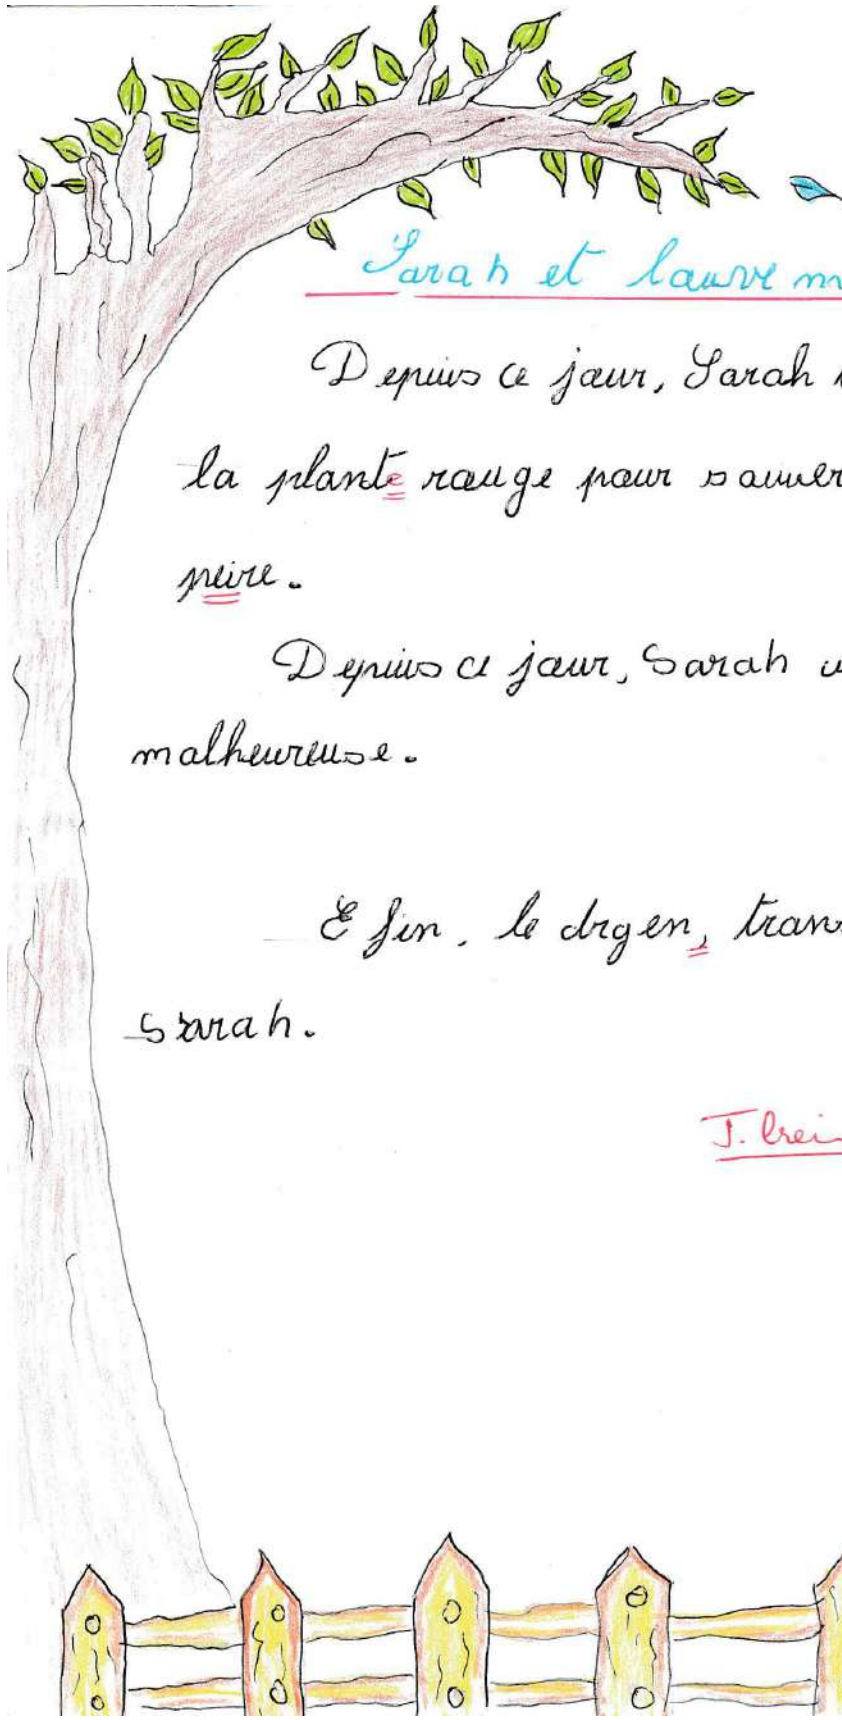 Sarah et
Depuis ce jour, Sarah
la plante rouge pour sauver
peire.
Depuis ce jour, Sarah
malheureuse.
E fin, le drgen,
Sarah.
J.